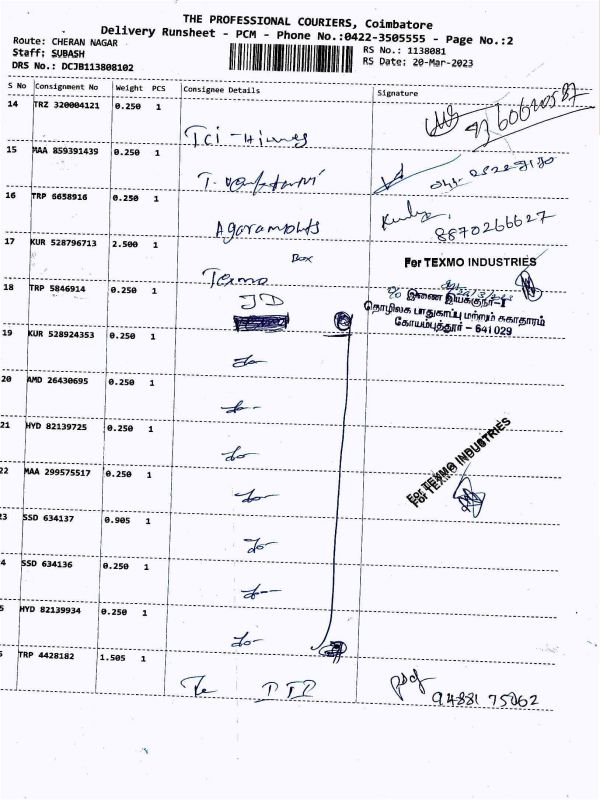 THE PROFESSIONAL COURIERS, Coimbatore
Delivery Runsheet - PCM - Phone No.:0422-3505555 - Page No.:2
Route: CHERAN NAGAR
Staff: SUBASH
DRS No.: DCJB113808102
RS No.: 1138081
RS Date: 20-Mar-2023
S No Consignment No Weight PCS Consignee Details Signature
14 TRZ 320004121 0.250 1
15 MAA 859391439 0.250 1
16 TRP 6658916 0.250 1
8870266627
17 KUR 528796713 2.500 1
Box
Texmo
For TEXMO INDUSTRIES
18 TRP 5846914 0.250 1
JD
% இணை இயக்குநர்-I
தொழிலக பாதுகாப்பு மற்றும் சுகாதாரம்
கோயம்புத்தூர் - 641029
19 KUR 528924353 0.250 1
do-
20 AMD 26430695 0.250 1
do-
21 HYD 82139725 0.250 1
do-
For TEXMO INDUSTRIES
For TEXMO INDUSTRIES
22 MAA 299575517 0.250 1
do-
3 SSD 634137 0.905 1
do-
4 SSD 634136 0.250 1
do-
5 HYD 82139934 0.250 1
do-
TRP 4428182 1.505 1
94881 75062